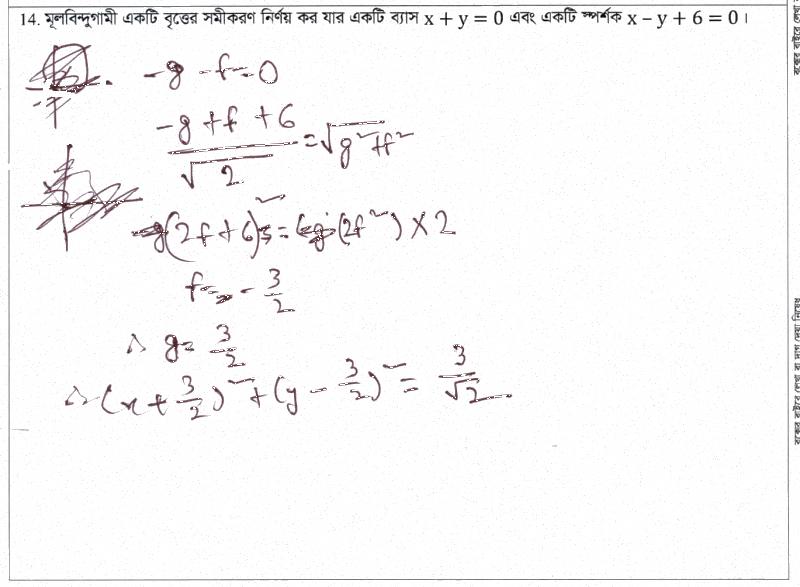 14. মূলবিন্দুগামী একটি বৃত্তের সমীকরণ নির্ণয় কর যার একটি ব্যাস x + y = 0 এবং একটি স্পর্শক x – y + 6 = 0 ।
-g -f = 0
(-g + f + 6)/√2 = √(g² + f²)
(2f + 6)² = (2f²) × 2
f = - 3/2
∴ g = 3/2
∴ (x + 3/2)² + (y - 3/2)² = 3/√2